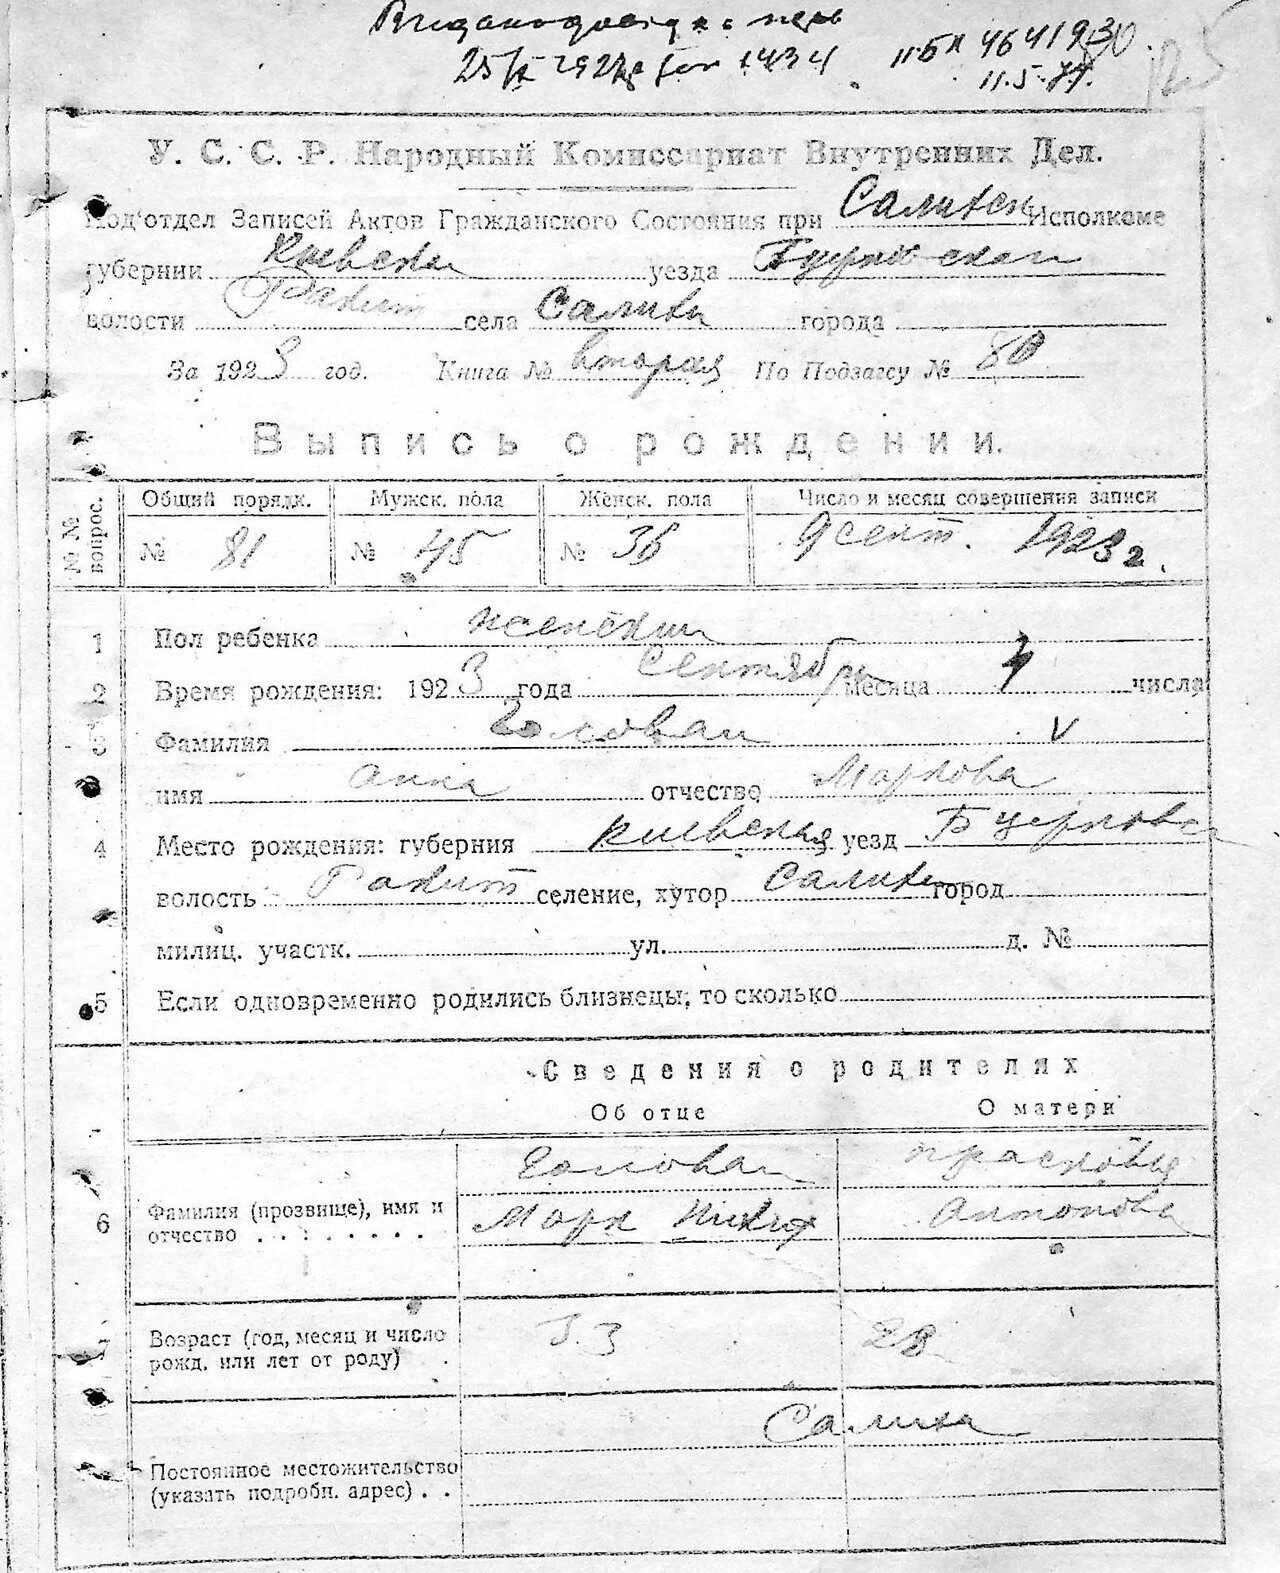 11.5.77.
У. С. С. Р. Народный Комиссариат Внутренних Дел.
Под'отдел Записей Актов Гражданского Состояния при Салихск Исполкоме
губернии Киевской уезда Бцерковской
волости Ракит села Салиха города
За 1923 год. Книга № вторая По Подзагсу № 80
Выпись о рождении.
№ № вопрос. Общий порядк. Мужск. пола Женск. пола Число и месяц совершения записи
№ 81 № 45 № 36 9 сент. 1923 г.
1 Пол ребенка женский
2 Время рождения: 1923 года Сентября месяца числа
3 Фамилия Голован V
имя Анна отчество Маркова
4 Место рождения: губерния Киевская уезд Бцерковск
волость Ракит селение, хутор Салиха город
милиц. участк. ул. д. №
5 Если одновременно родились близнецы, то сколько
Сведения о родителях
Об отце О матери
Голован Прасковья
6 Фамилия (прозвище), имя и отчество Марк Никит Антонова
7 Возраст (год, месяц и число рожд. или лет от роду) 33 28
Салиха
Постоянное местожительство
(указать подробн. адрес)